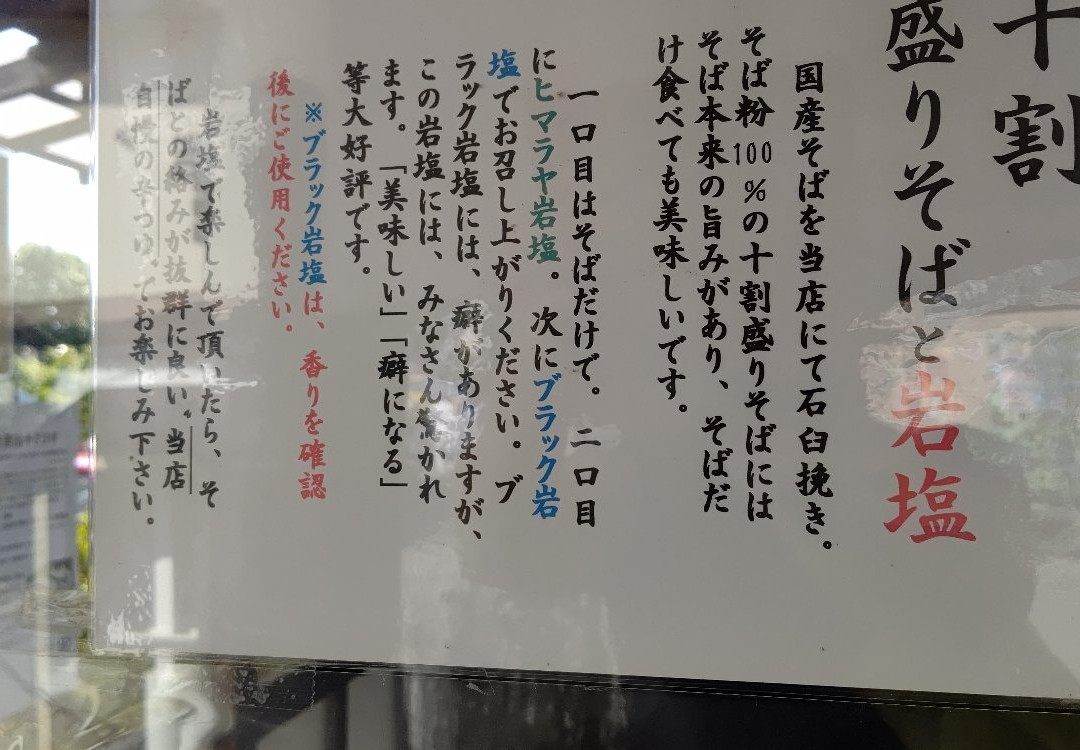 十割
盛りそばと岩塩
国産そばを当店にて石臼挽き。
そば粉100%の十割盛りそばには
そば本来の旨みがあり、そばだ
け食べても美味しいです。
一口目はそばだけで。二口目
にヒマラヤ岩塩。次にブラック岩
塩でお召し上がりください。ブ
ラック岩塩には、癖がありますが、
この岩塩には、みなさん驚かれ
ます。「美味しい」「癖になる」
等大好評です。
※ブラック岩塩は、香りを確認
後にご使用ください。
岩塩で楽しんで頂いたら、そ
ばとの絡みが抜群に良い〝当店
自慢の辛つゆ〟でお楽しみ下さい。